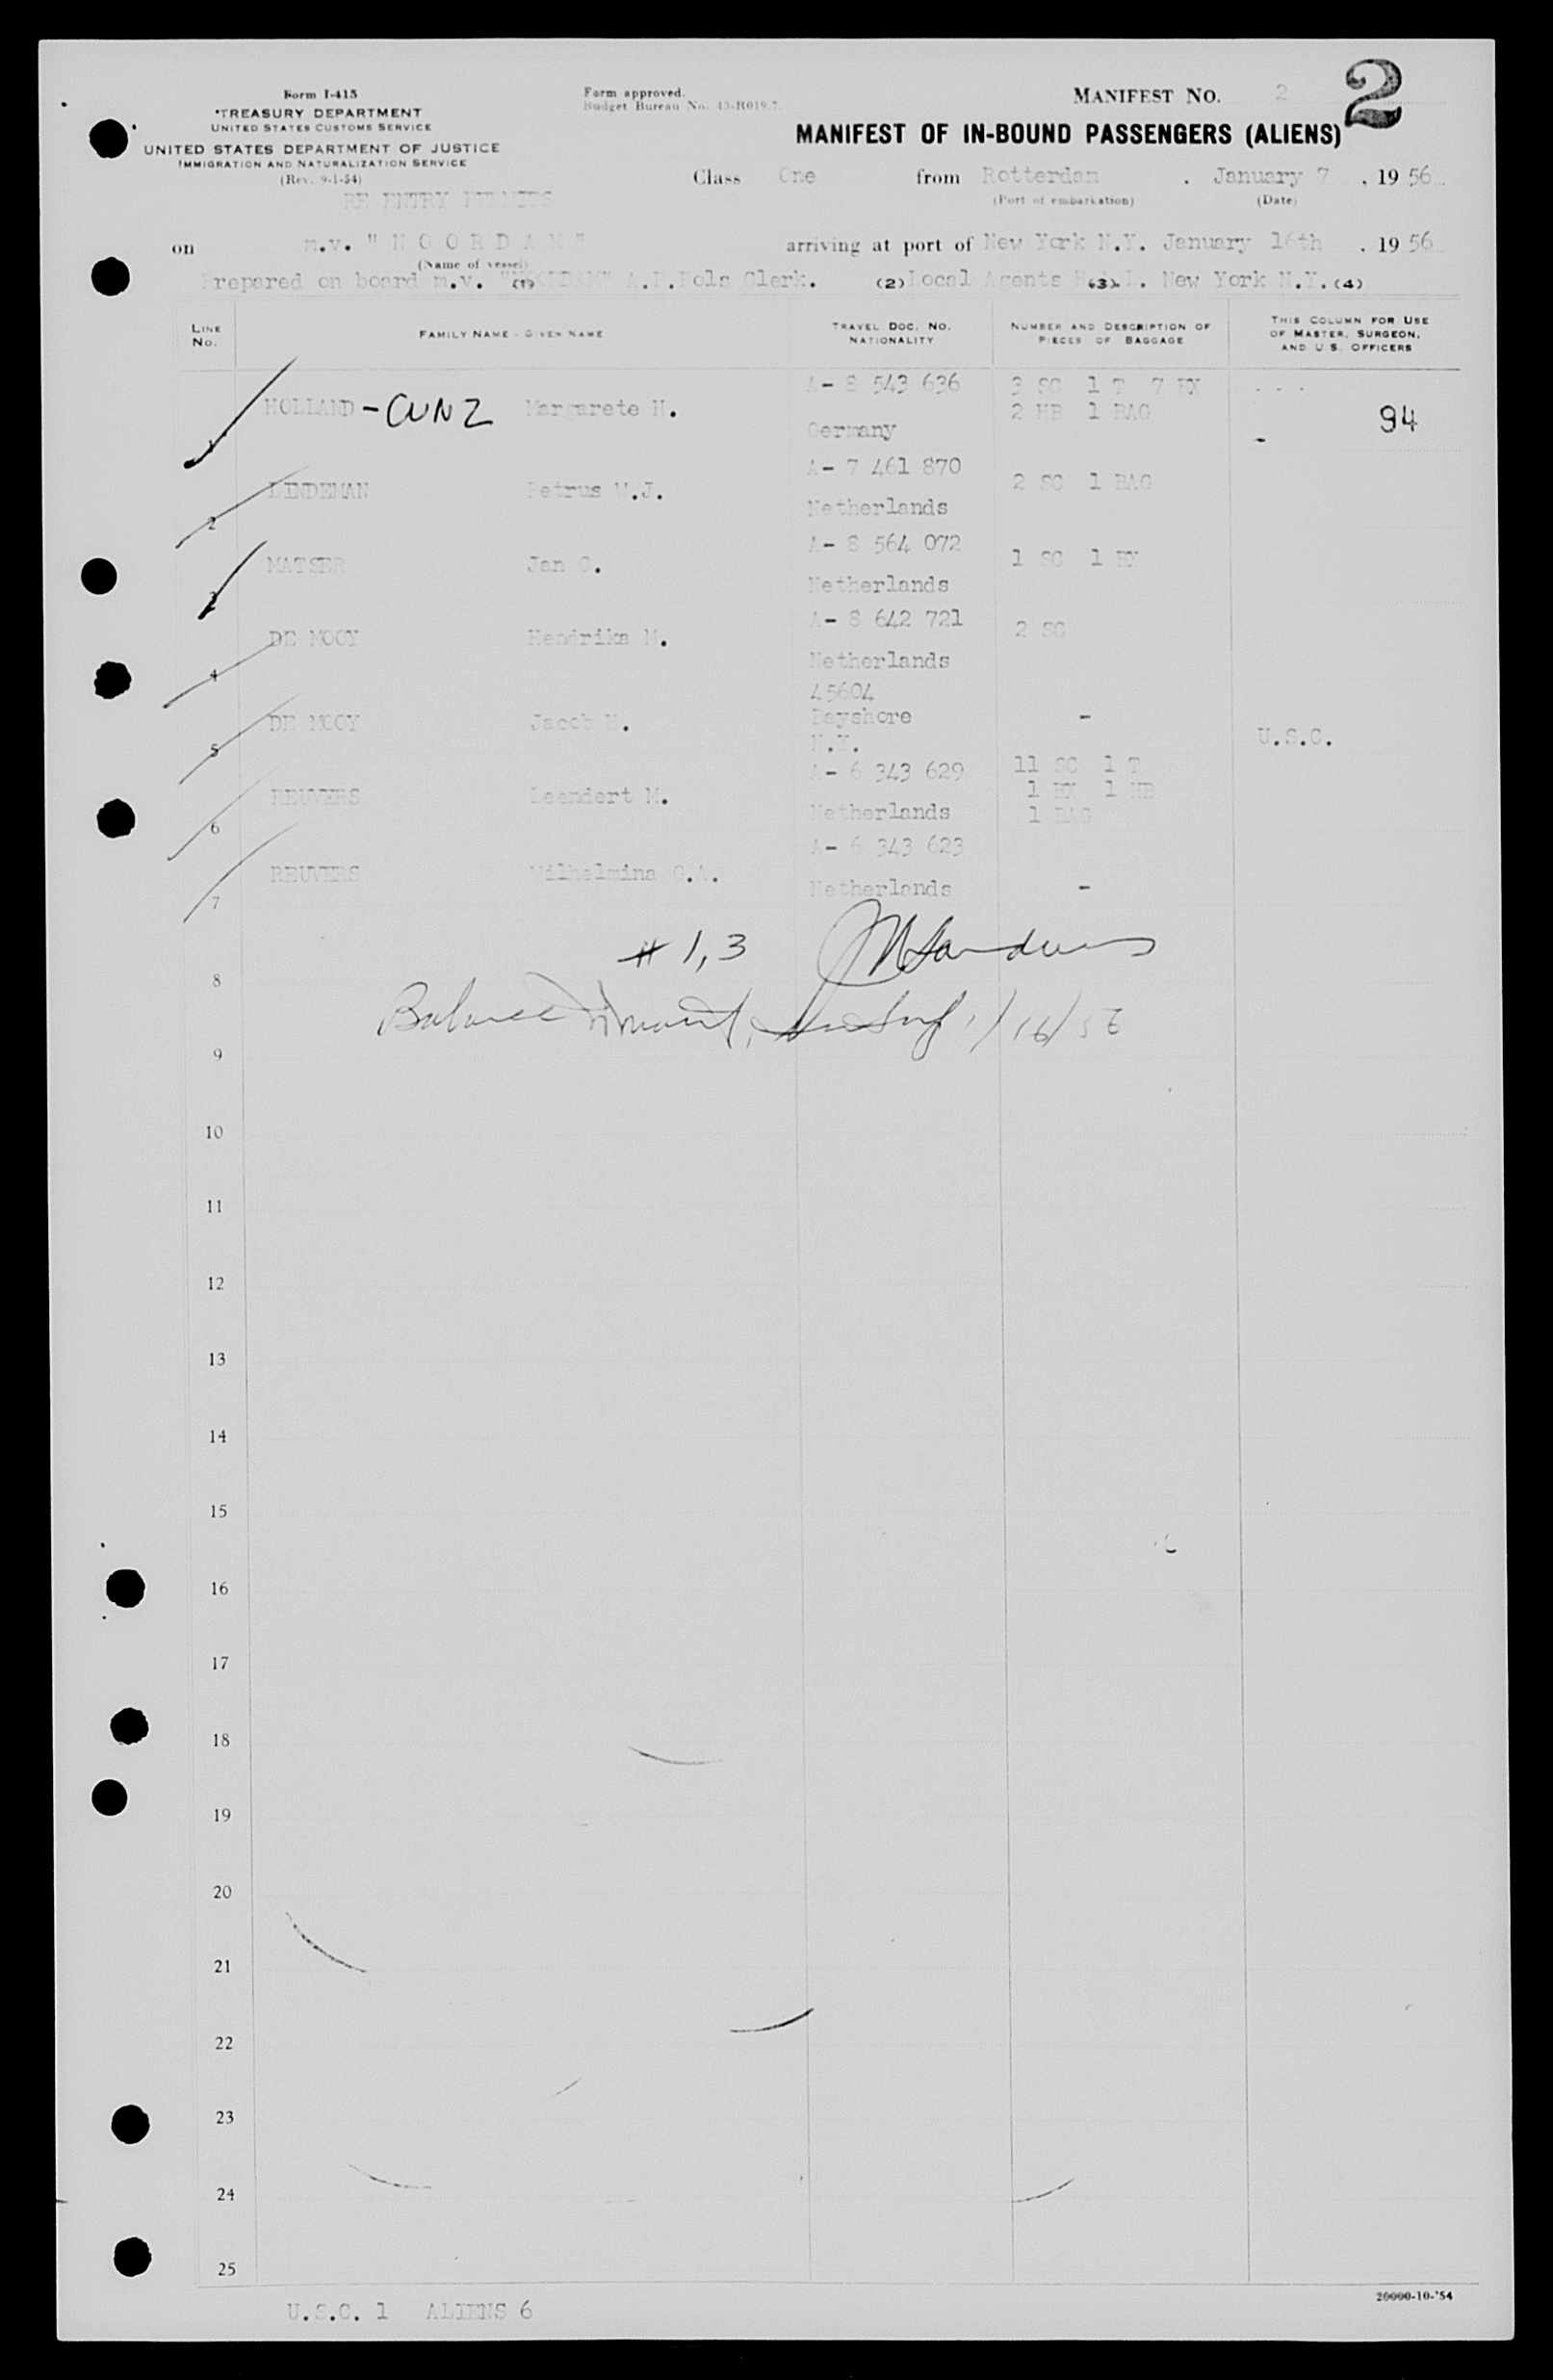 Form I-415
*TREASURY DEPARTMENT
UNITED STATES CUSTOMS SERVICE
UNITED STATES DEPARTMENT OF JUSTICE
IMMIGRATION AND NATURALIZATION SERVICE
(Rev. 9-1-54)
RE ENTRY PERMITS
Form approved.
Budget Bureau No. 43-R019.7.
MANIFEST NO. 2
2
MANIFEST OF IN-BOUND PASSENGERS (ALIENS)
Class One from Rotterdam , January 7 , 1956
(Port of embarkation) (Date)
on m.v. "NOORDAM" arriving at port of New York N.Y. January 16th , 1956
(Name of vessel)
Prepared on board m.v. "NOORDAM" Clerk. (2) Local Agents (3) New York N.Y. (4)
LINE NO. FAMILY NAME - GIVEN NAME TRAVEL DOC. NO. NATIONALITY NUMBER AND DESCRIPTION OF PIECES OF BAGGAGE THIS COLUMN FOR USE OF MASTER, SURGEON, AND U.S. OFFICERS
1 HOLLAND - CUNZ Margarete H. A- 8 543 636 3 SC 1 T 7 BX - - -
Germany 2 HB 1 BAG - 94
2 LINDEMAN Petrus W.J. A- 7 461 870 2 SC 1 BAG
Netherlands
3 MATSER Jan A- 8 564 072 1 SC 1 BX
Netherlands
4 DE MOOY Hendrika M. A- 8 642 721 2 SC
Netherlands
5 DE MOOY Jacob 45604 - U.S.C.
Bayshore
N.Y.
6 REUVERS Leendert M. A- 6 343 629 11 SC 1 T
1 BX 1 HB
Netherlands 1 BAG
7 REUVERS Wilhelmina A- 6 343 623
Netherlands -
# 1, 3
8
Balance 1/16/56
9
10
11
12
13
14
15
16
17
18
19
20
21
22
23
24
25
20000-10-'54
U.S.C. 1 ALIENS 6